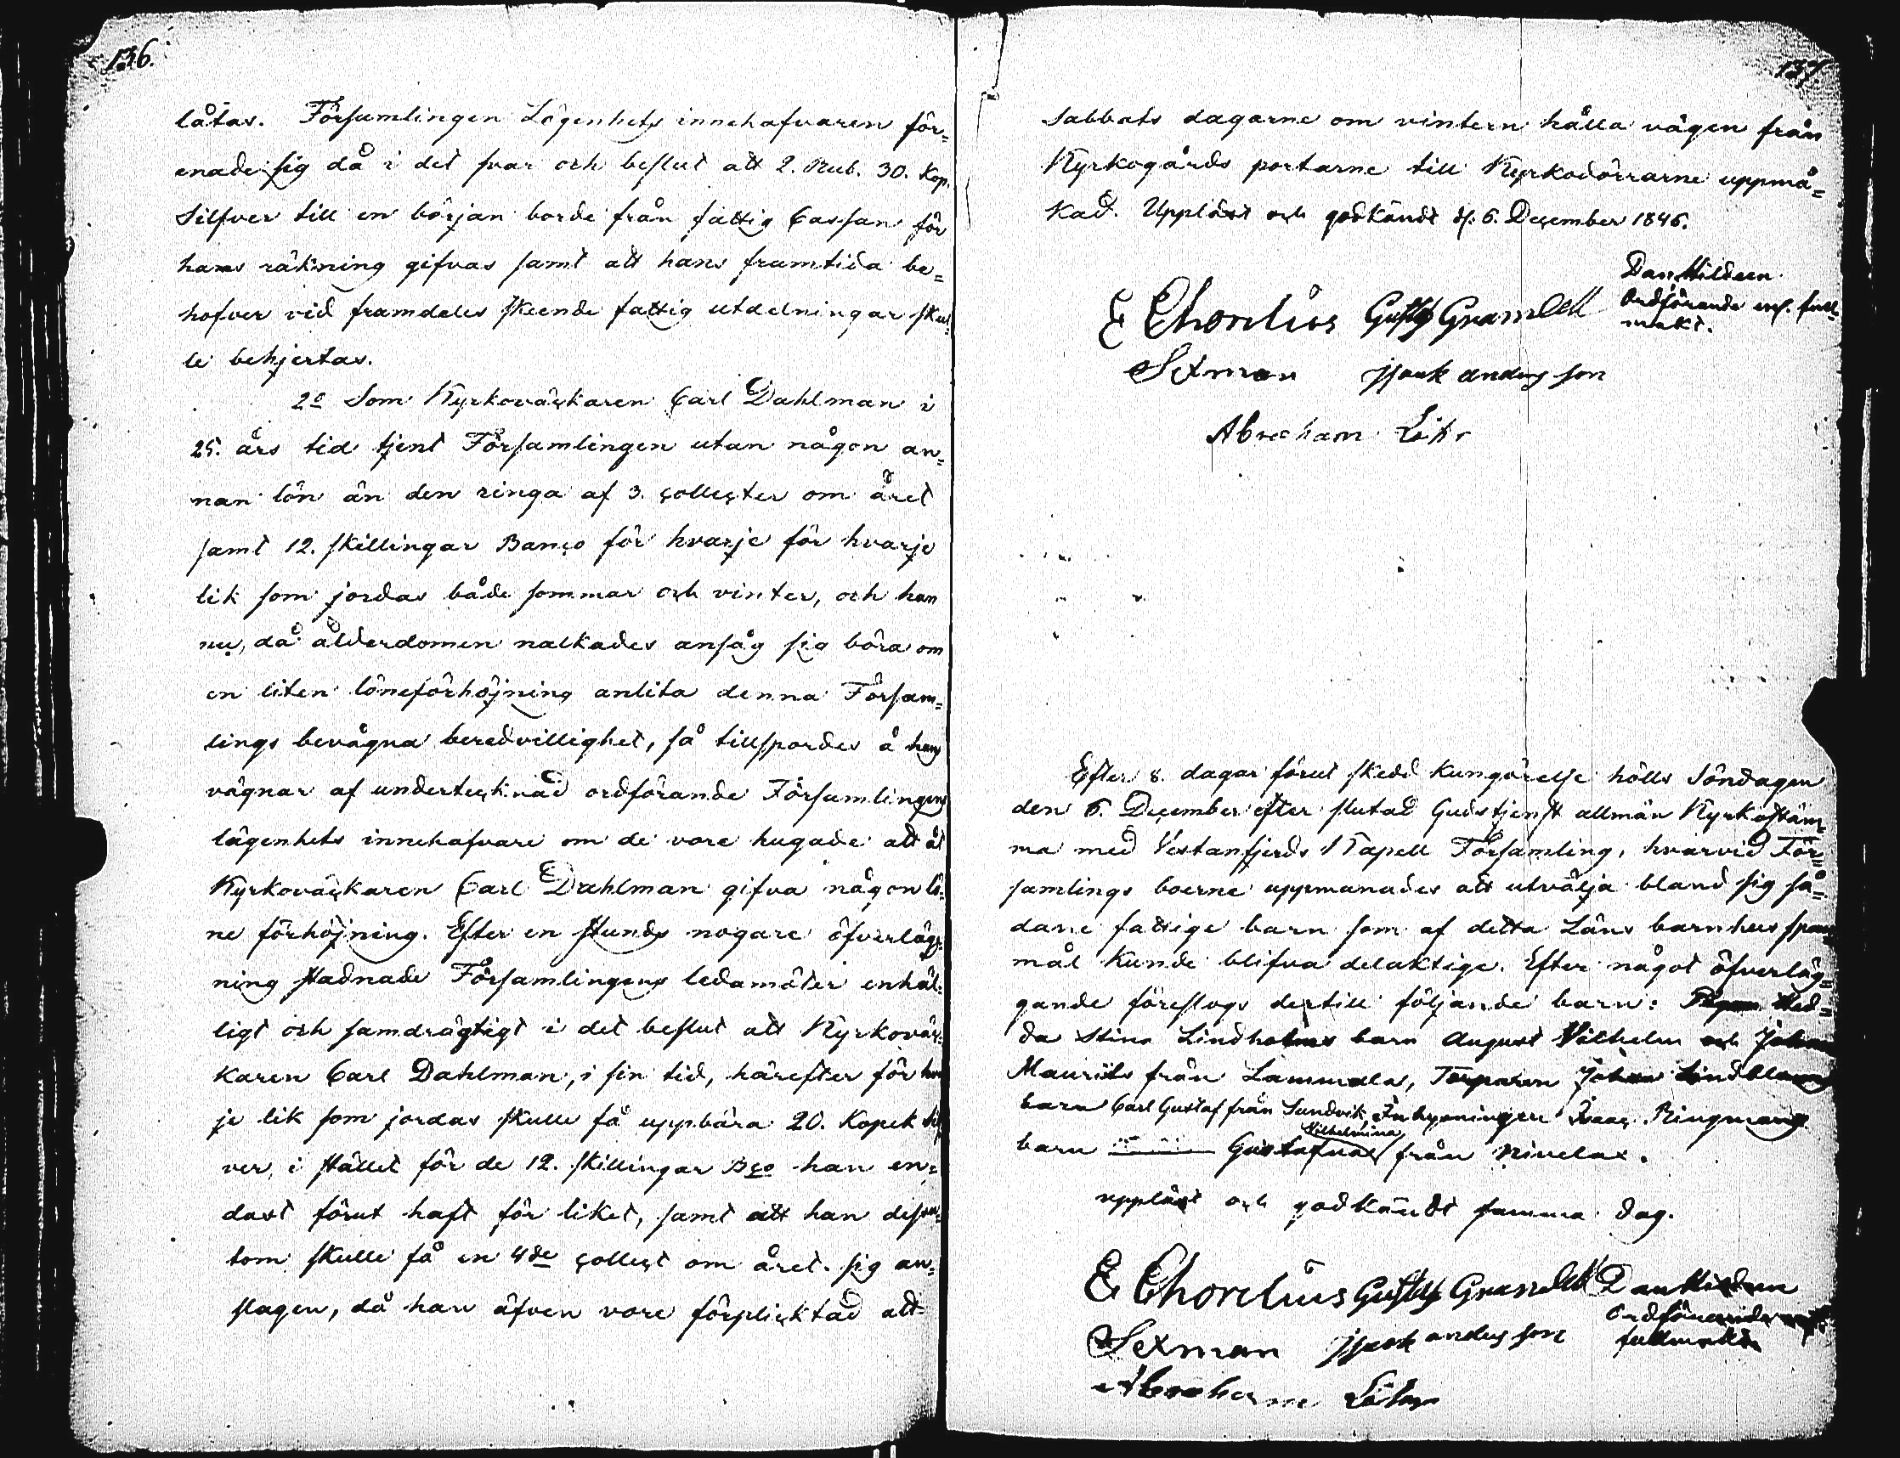 136.
låtas. Församlingen Lägenhets innehafvaren för=
enade sig då i det svar och beslut att 2. Rub. 30. Kop.
Silfver till en början borde från fattig Cassan för
hans räkning gifvas samt att hans framtida be=
hofver vid framdeles skeende fattig utdelningar skul
le behjertas.
2o Som Kyrkoväckaren Carl Dahlman i
25. års tid tjent Församlingen utan någon an=
nan lön än den ringa af 3. collecter om året
samt 12. skillingar Banco för hvarje för hvarje
lik som jordas både sommar och vinter, och han
nu, då ålderdomen nalkades ansåg sig böra om
en liten löneförhöjning anlita denna Försam=
lings bevågna beredvillighet, så tillspordes å hans
vägnar af undertecknad ordförande Församlingens
lägenhets innehafvare om de vore hugade att åt
Kyrkoväckaren Carl Dahlman gifva någon lö=
ne förhöjning. Efter en stunds nogare öfverlägg=
ning stadnade Församlingens ledamöter enhäl=
ligt och samdrägtigt i det beslut att Kyrkoväc=
karen Carl Dahlman, i sin tid, härefter för hvar
je lik som jordas skulle få uppbära 20. Kopek Silf
ver, i stället för de 12. skillingar Bco han en=
dast förut haft för liket, samt att han dessu=
tom skulle få en 4de collect om året sig an=
slagen, då han äfven vore förplicktad att
137.
Sabbats dagarne om vintern hålla vägen från
Kyrkogårds portarne till Kyrkodörrarne uppmå=
kad. Uppläst och godkändt d. 6. December 1846.
Dan Hildeen
Ordförande enl. full=
makt.
E Chorelius Gustaf Grandell
Sexman Isaak andersson
Abraham
Efter 8. dagar förut skedd kungörelse hölls Söndagen
den 6. December efter slutad Gudstjenst allmän Kyrkostäm
ma med Vestanfjerds Kapell Församling, hvarvid För=
samlings boerne uppmanades att utvälja bland sig så=
dane fattige barn som af detta Läns barnhus span
mål kunde blifva delaktige. Efter något öfverläg=
gande föreslogs dertill följande barn: Hed=
da Stina Lindholms barn August Vilhelm och Johan
Maurits från Lammala, Torparen Johan Lindbloms
barn Carl Gustaf från Sundvik Inhysningen Isaac Ringmans
barn Gustafva Vilhelmina från Nivelax.
uppläst och godkändt samma dag.
E Chorelius Gustaf Grandell Dan Hildeen
Ordförande enl.
fullmakt
Sexman Isaak andersson
Abraham